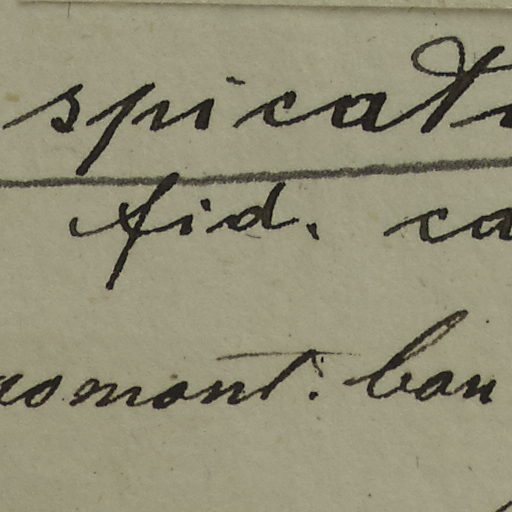 spicat
fid. ca
omont. ban